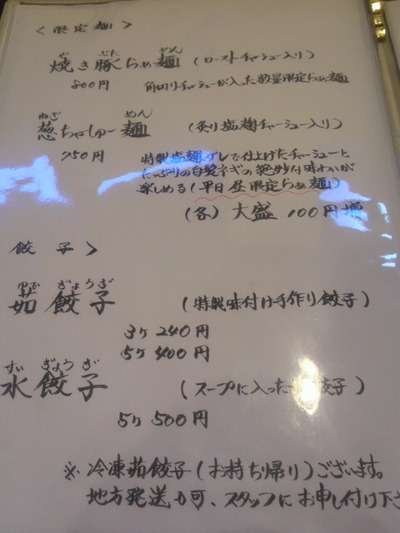 <限定麺>
焼き豚らぁ麺 (ローストチャーシュー入り)
800円 角切りチャーシューが入った数量限定らぁ麺
ねぎ めん
葱ちゃしゅー麺 (炙り塩麹チャーシュー入り)
950円 特製塩麹ダレで仕上げたチャーシューと
たっぷりの白髪ネギの絶妙な味わいが
楽しめる(平日昼限定らぁ麺)
(各) 大盛 100円増
餃子>
ゆで ぎょうざ
茹餃子 (特製味付け手作り餃子)
3ケ 240円
5ケ 400円
すい ぎょうざ
水餃子 (スープに入った 餃子)
5ケ 500円
※冷凍茹餃子(お持ち帰り)ございます。
地方発送も可、スタッフにお申し付け下さ